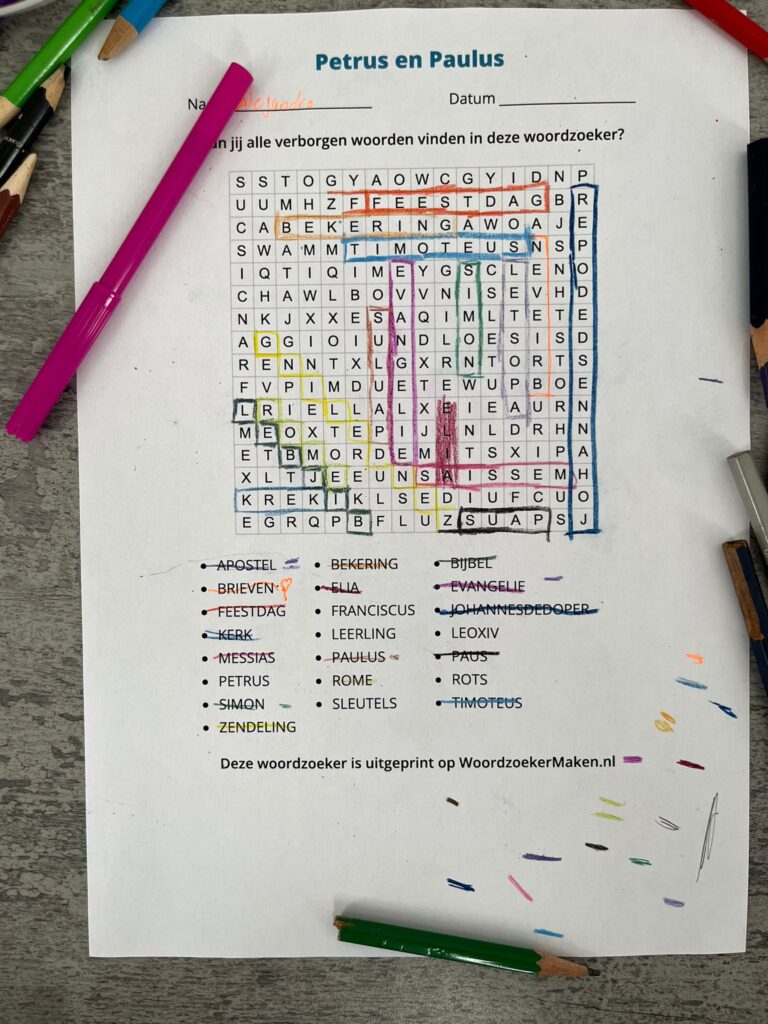 Petrus en Paulus
Alejandro Datum
jij alle verborgen woorden vinden in deze woordzoeker?
S S T O G Y A O W C G Y I D N P
U U M H Z F F E E S T D A G B R
C A B E K E R I N G A W O A J E
S W A M M T I M O T E U S N S P
I Q T I Q I M E Y G S C L E N O
C H A W L B O V V N I S E V H D
N K J X X E S A Q I M L T E T E
A G G I O I U N D L O E S I S D
R E N N T X L G X R N T O R T S
F V P I M D U E T E W U P B O E
L R I E L L A L X E I E A U R N
M E O X T E P I J L N L D R H N
E T B M O R D E M I T S X I P A
X L T J E E U N S A I S S E M H
K R E K I K L S E D I U F C U O
E G R Q P B F L U Z S U A P S J
• APOSTEL • BEKERING • BIJBEL
• BRIEVEN • ELIA • EVANGELIE
• FEESTDAG • FRANCISCUS • JOHANNESDEDOPER
• KERK • LEERLING • LEOXIV
• MESSIAS • PAULUS • PAUS
• PETRUS • ROME • ROTS
• SIMON • SLEUTELS • TIMOTEUS
• ZENDELING
Deze woordzoeker is uitgeprint op WoordzoekerMaken.nl